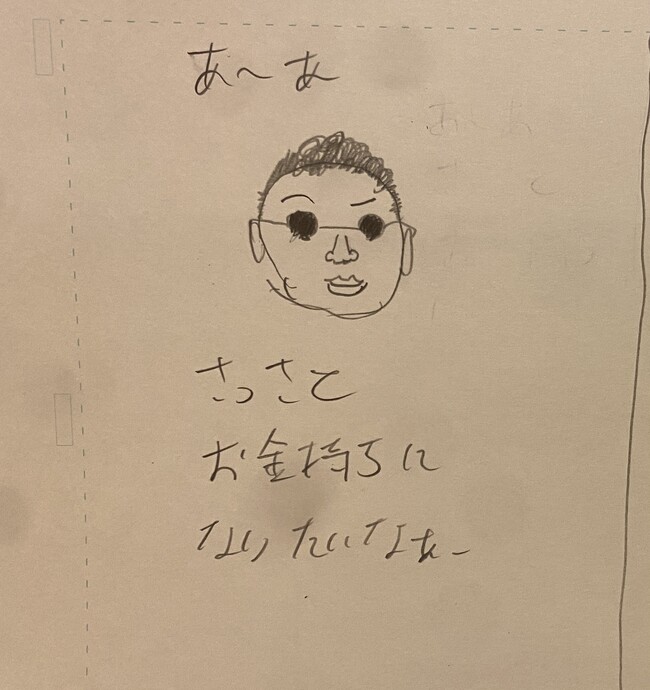 あ〜あ
さっさと
お金持ちに
なりたいなぁー